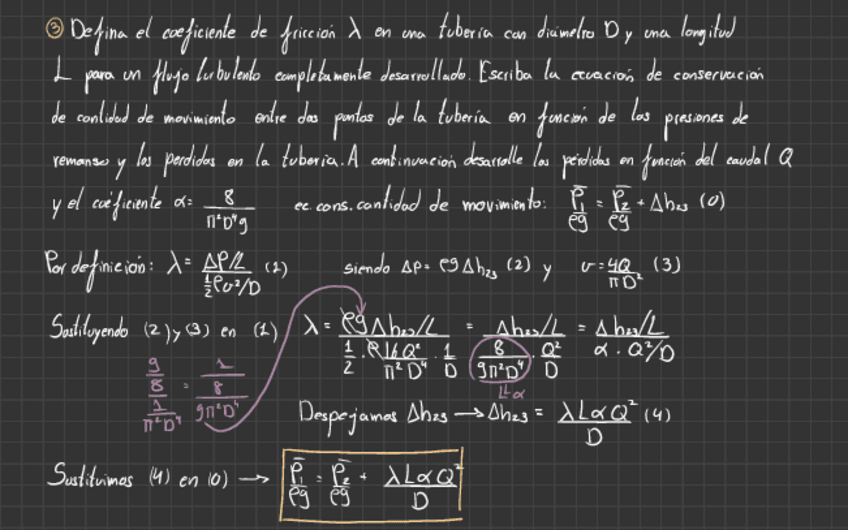 ③ Defina el coeficiente de fricción λ en una tubería con diámetro D y una longitud
L para un flujo turbulento completamente desarrollado. Escriba la ecuación de conservación
de cantidad de movimiento entre dos puntos de la tubería en función de las presiones de
remanso y las perdidas en la tubería. A continuación desarrolle las pérdidas en función del caudal Q
y el coeficiente α = 8/(π²D⁴g) ec. cons. cantidad de movimiento: P̄₁/ρg = P̄₂/ρg + Δh₂₃ (0)
Por definición: λ = (ΔP/L)/(½ρv²/D) (1) siendo Δp = ρgΔh₂₃ (2) y v = 4Q/(πD²) (3)
Sustituyendo (2) y (3) en (1) λ = (ρgΔh₂₃/L)/(1/2 · ρ16Q²/(π²D⁴) · 1/D) = (Δh₂₃/L)/(8/(gπ²D⁴) · Q²/D) = (Δh₂₃/L)/(α · Q²/D)
(g/8)/(1/(π²D⁴)) = 1/(8/(gπ²D⁴))
↳α
Despejamos Δh₂₃ → Δh₂₃ = λLαQ²/D (4)
Sustituimos (4) en (0) → P̄₁/ρg = P̄₂/ρg + λLαQ²/D